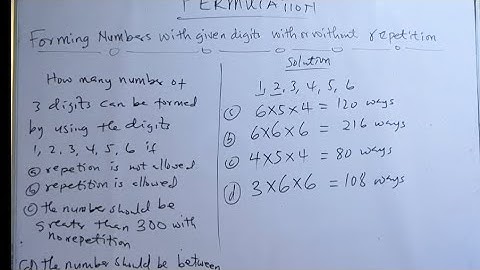 PERMUTATION
Forming Numbers with given digits with or without repetition
How many number of
3 digits can be formed
by using the digits
1, 2, 3, 4, 5, 6 if
(a) repetion is not allowed
(b) repetition is allowed
(c) the number should be
greater than 300 with
no repetition
(d) the number should be between
Solution
1, 2, 3, 4, 5, 6
6x5x4 = 120 ways
(b) 6x6x6 = 216 ways
(c) 4x5x4 = 80 ways
(d) 3x6x6 = 108 ways